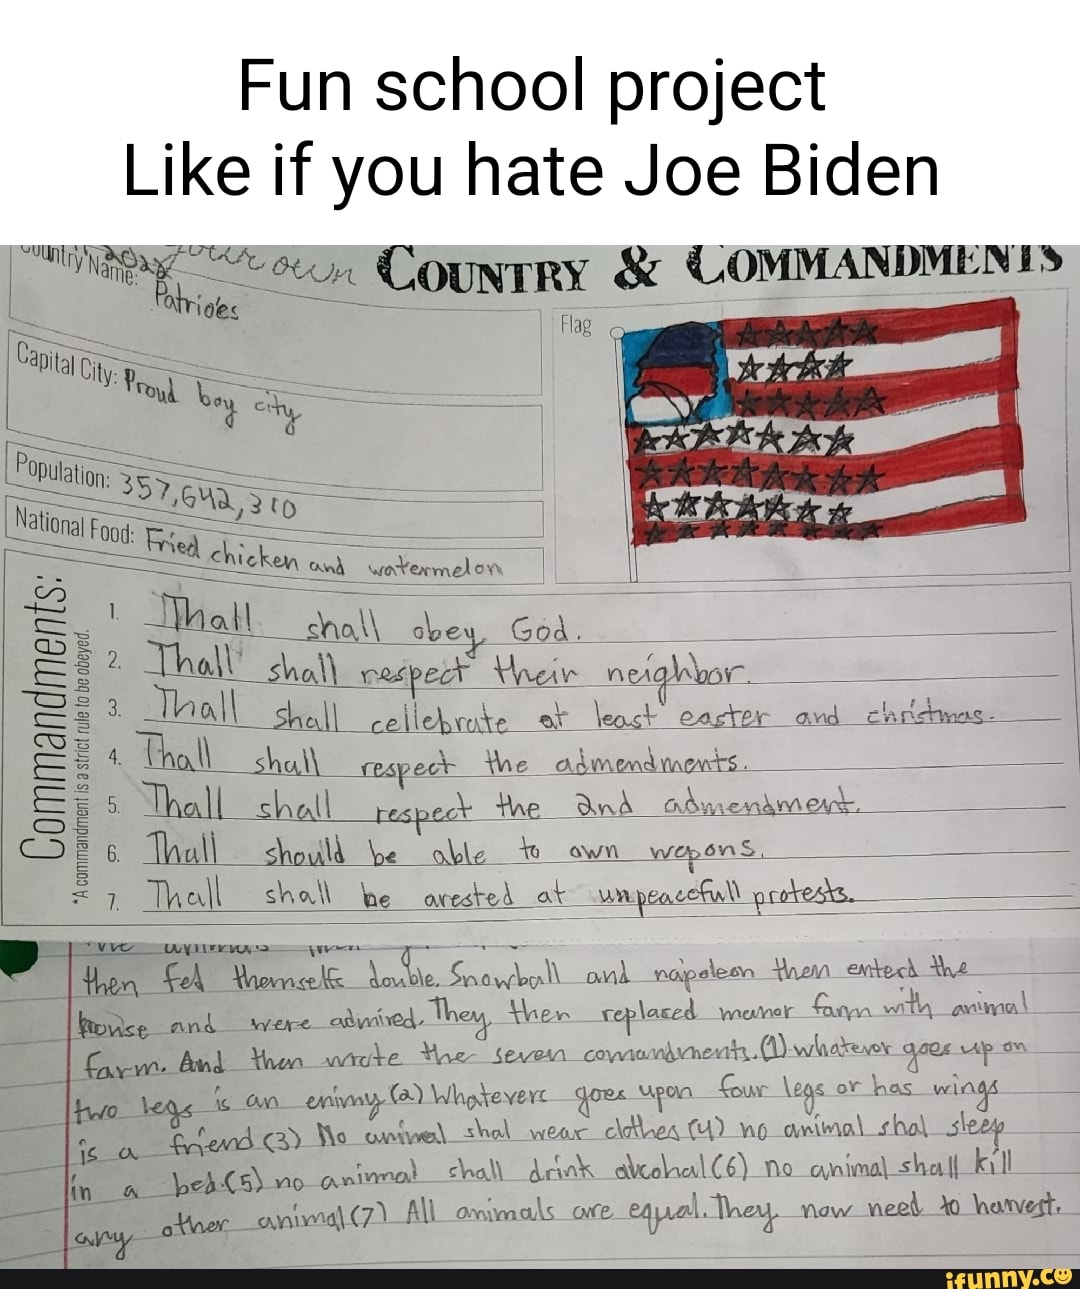 Fun school project
Like if you hate Joe Biden
your own COUNTRY & COMMANDMENTS
Country Name:
Patrioles
Flag
Capital City: Proud boy city
Population: 357,642,310
National Food: Fried chicken and watermelon
Commandments:
*A commandment is a strict rule to be obeyed.
1. Thall shall obey God.
2. Thall shall respect their neighbor.
3. Thall shall cellebrate at least easter and christmas.
4. Thall shall respect the admendments.
5. Thall shall respect the 2nd admendment.
6. Thall should be able to own wepons.
7. Thall shall be arested at unpeacefull protests.
then fed themselfs double. Snowball and napoleon then enterd the
house and were admired. They then replaced manor farm with animal
farm. And then wrote the seven comandments. (1) whatevor goes up on
two legs is an enimy (2) Whateverc goes upon four legs or has wings
is a friend (3) No animal shal wear clothes (4) no animal shal sleep
in a bed. (5) no animal shall drink alcohal (6) no animal shall kill
any other animal (7) All animals are equal. They now need to harvest.
ifunny.co